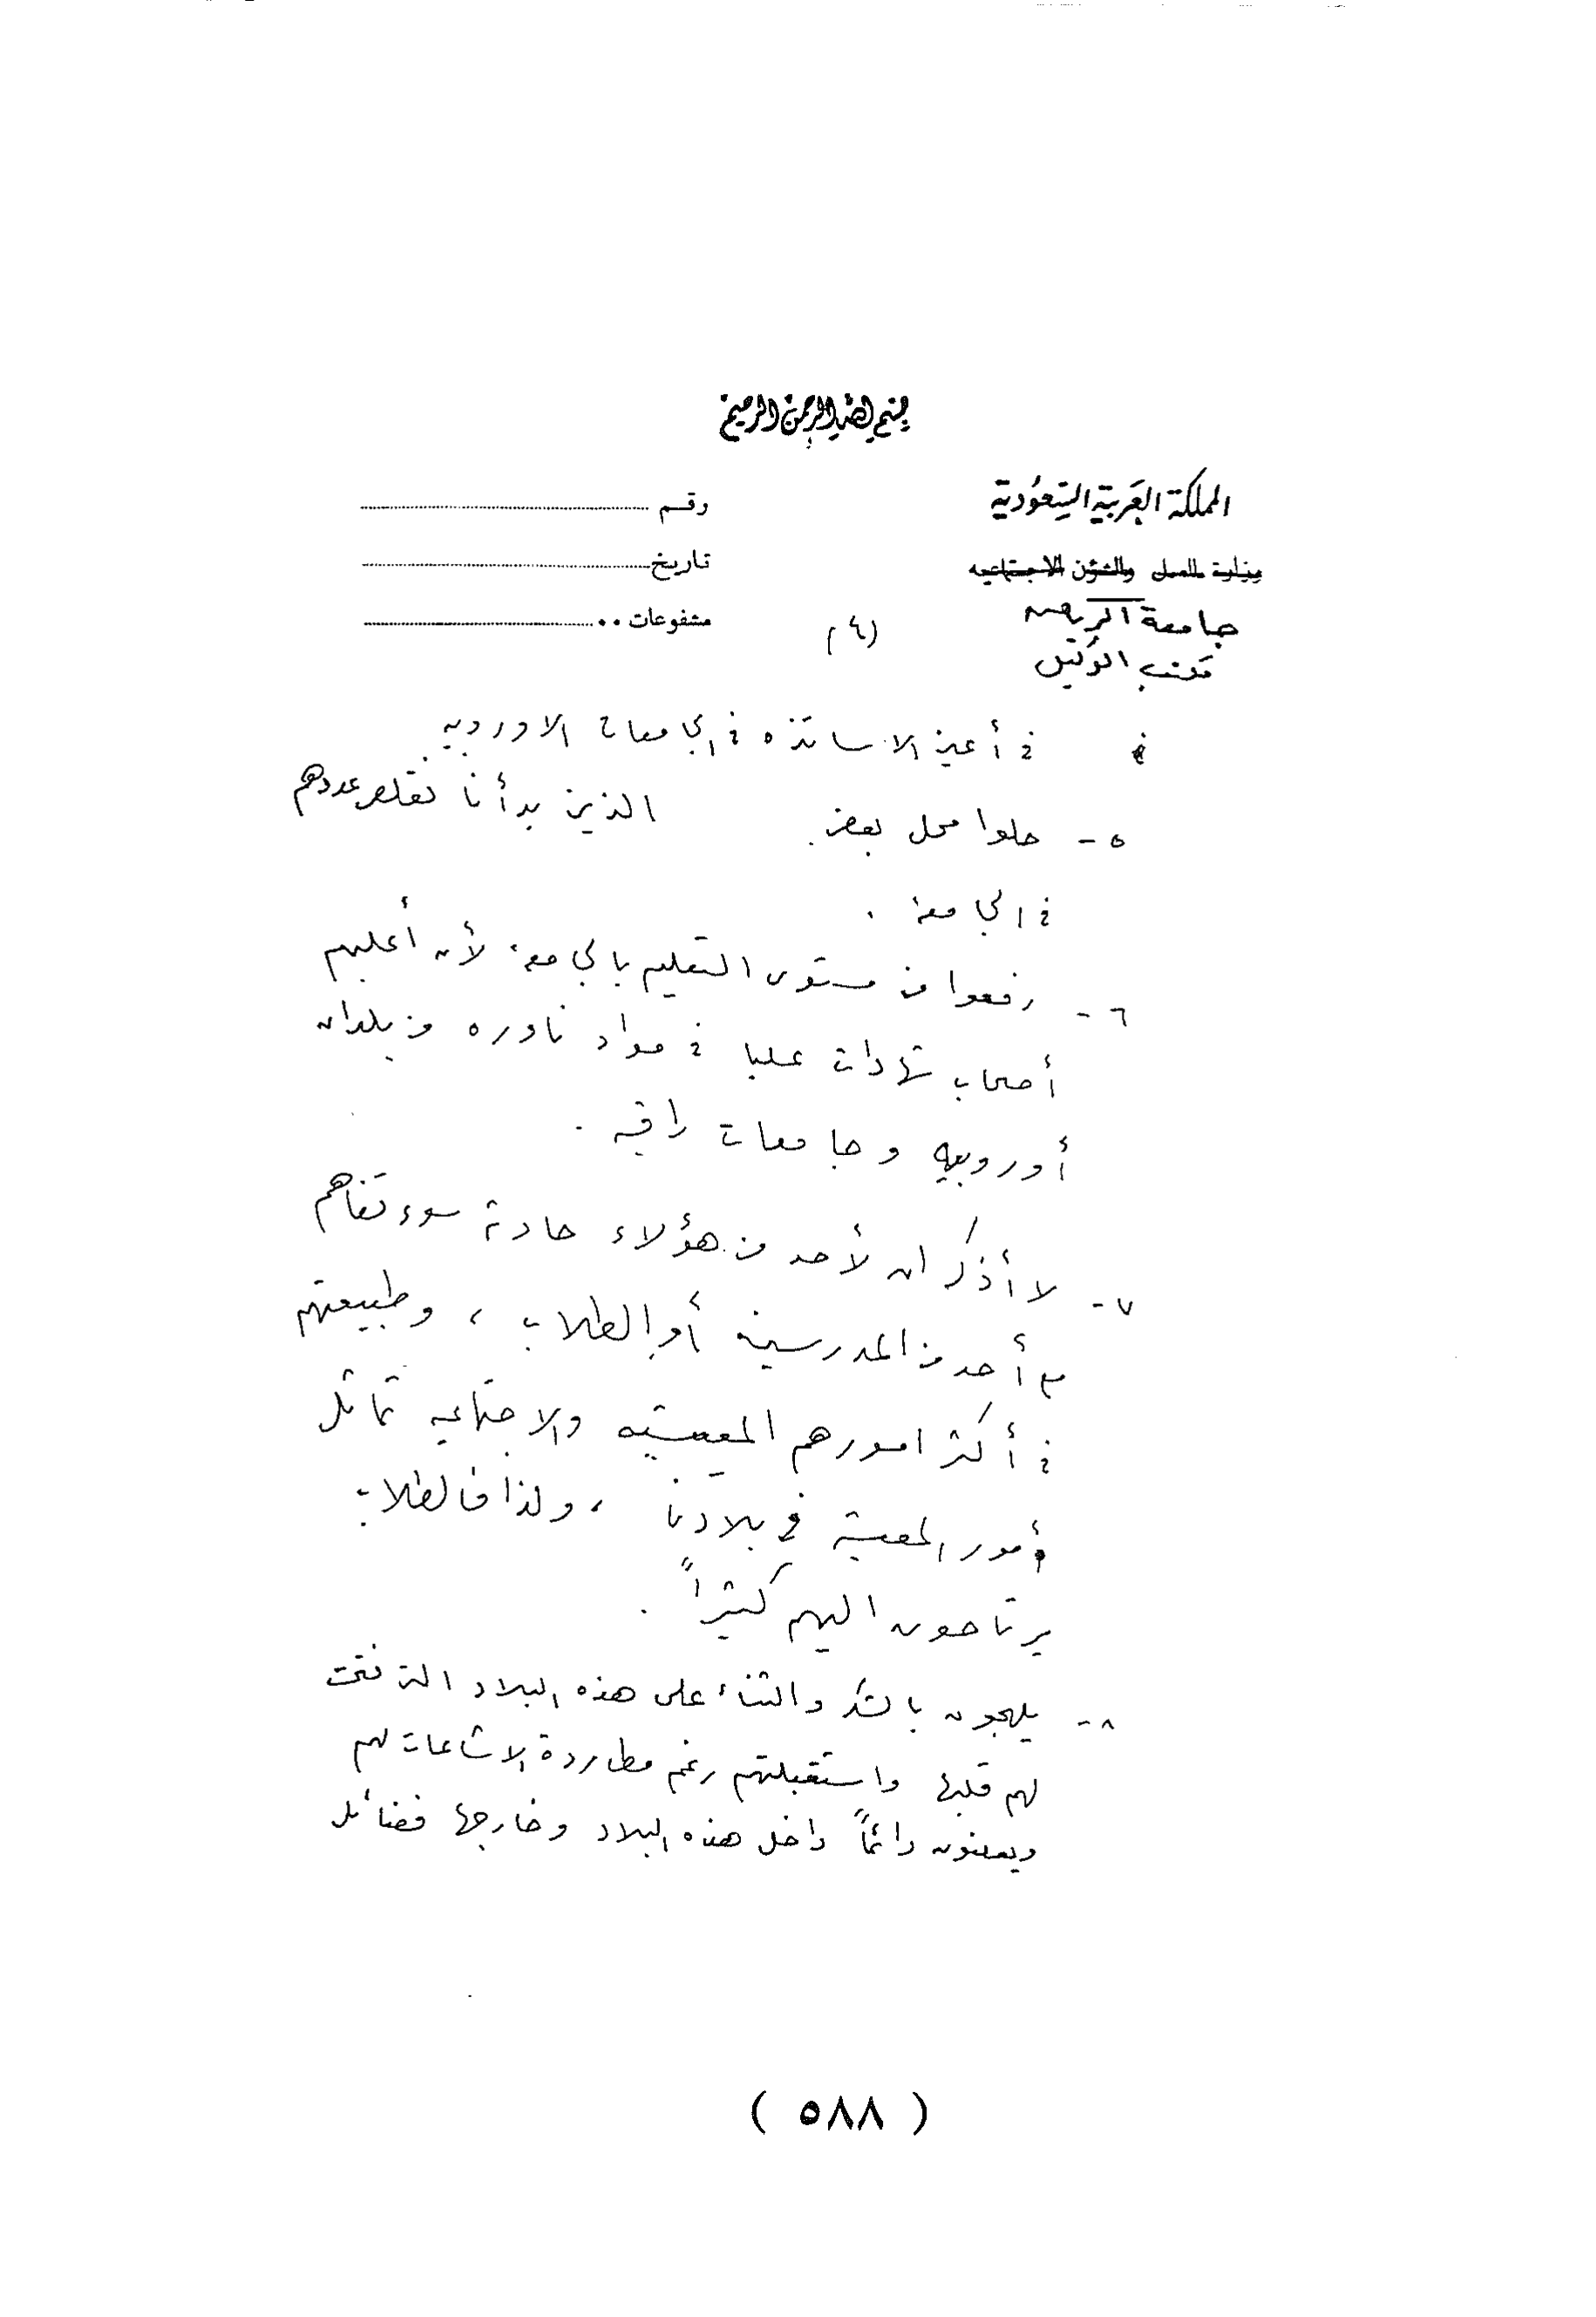 بسم الله الرحمن الرحيم
المملكة العربية السعودية
رقم
وزارة العمل والشئون الاجتماعيه
تاريخ
جامعة الرياض
مشفوعات
(٤)
مكتب الوكيل
في أعين الاساتذه في الجامعات الاوروبيه
٥- حلوا محل بعض الذين بدأنا نقلص عددهم
في الجامعة .
٦- رفعوا من مستوى التعليم بالجامعة لأن أغلبهم
أصحاب شهادات عليا في مواد نادره من بلدان
أوروبيه وجامعات راقيه .
٧- لا أذكر ان لأحد من هؤلاء حادثة سوء تفاهم
مع أحد من المدرسين أو الطلاب ، وطبيعتهم
في أكثر امورهم المعيشيه والاجتماعيه تماثل
أمور المعيشة في بلادنا ، ولذا فالطلاب
يرتاحون اليهم كثيراً .
٨- يلهجون بالشكر والثناء على هذه البلاد التي فتحت
لهم قلبها واستقبلتهم رغم مطاردة الاشاعات لهم
ويعلنون دائماً داخل هذه البلاد وخارجها فضائل
( ٥٨٨ )